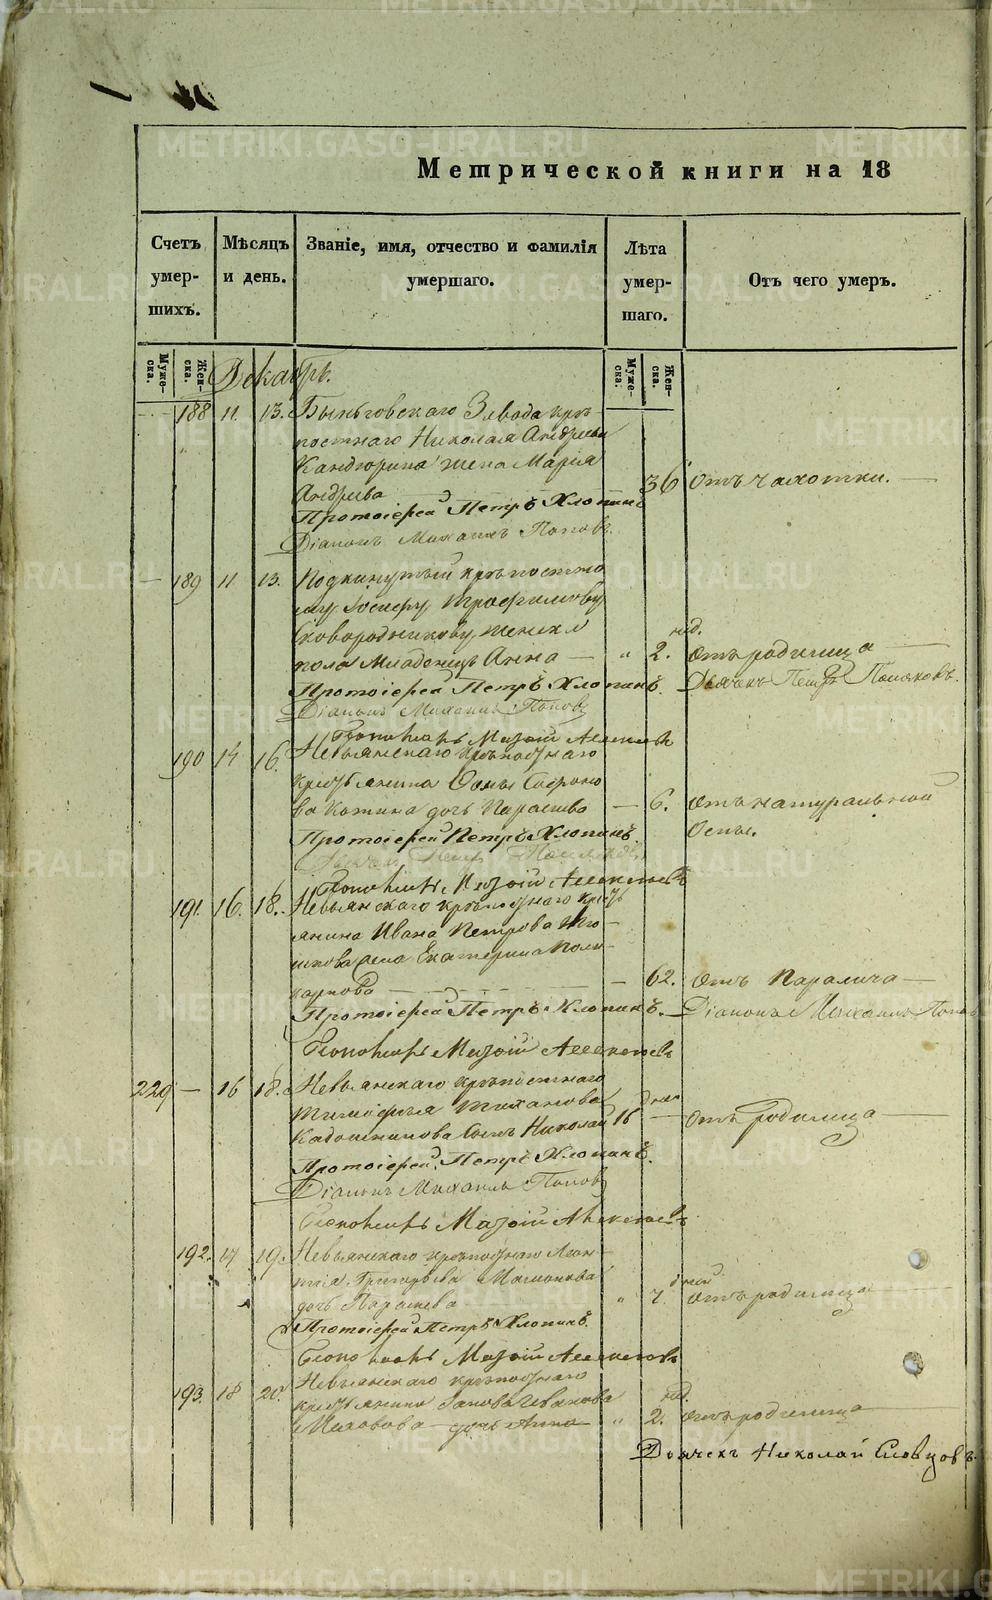 METRIKI.GASO-URAL.RU
Метрической книги на 18
Счетъ умер-шихъ.
Мѣсяцъ и день.
Званіе, имя, отчество и фамилія умершаго.
Лѣта умер-шаго.
Отъ чего умеръ.
Муже-ска.
Жен-ска.
Муже-ска.
Жен-ска.
Декабрь.
188 11 13. Быньговскаго Завода крѣ
постнаго Николая Андреева
Кандюрина жена Марія
Андреева 36 отъ чахотки.
Протоіерей Петръ Хлопинъ
Діаконъ Михаилъ Поповъ.
189 11 13. Подкинутый крѣпостно
му Трофимову
Сковородникову, женскаго
нед.
пола младенецъ Анна — " 2. отъ родимца
Протоіерей Петръ Хлопинъ. Дьячекъ Петръ Поляковъ.
Діаконъ Михаилъ Поповъ
Пономарь Алексеевъ
190 14 16. Невьянскаго крѣпостнаго
крестьянина Фомы Софроно
ва Котина дочь Параскева — 6. отъ натуральной
Протоіерей Петръ Хлопинъ оспы.
Дьячекъ Петръ Поляковъ
Пономарь Алексеевъ
191. 16. 18. Невьянскаго крѣпостнаго крест
янина Ивана Петрова
Екатерина Поли
карпова — 62. отъ Паралича
Протоіерей Петръ Хлопинъ. Діаконъ Михаилъ Поповъ
Пономарь Алексеевъ
229 — 16 18. Невьянскаго крѣпостнаго
дней
Кадошникова сынъ Николай 16 — отъ родимца
Протоіерей Петръ Хлопинъ.
Діаконъ Михаилъ Поповъ
Пономарь Алексеевъ
192. 17 19. Невьянскаго крѣпостнаго Леон-
тія Григорьева
дней
дочь Параскева " 7. отъ родимца
Протоіерей Петръ Хлопинъ.
Пономарь Алексеевъ
193. 18 20. Невьянскаго крѣпостнаго
крестьянина Иванова
нед.
дочь Анна " 2. отъ родимца
Дьячекъ Николай Словцовъ.